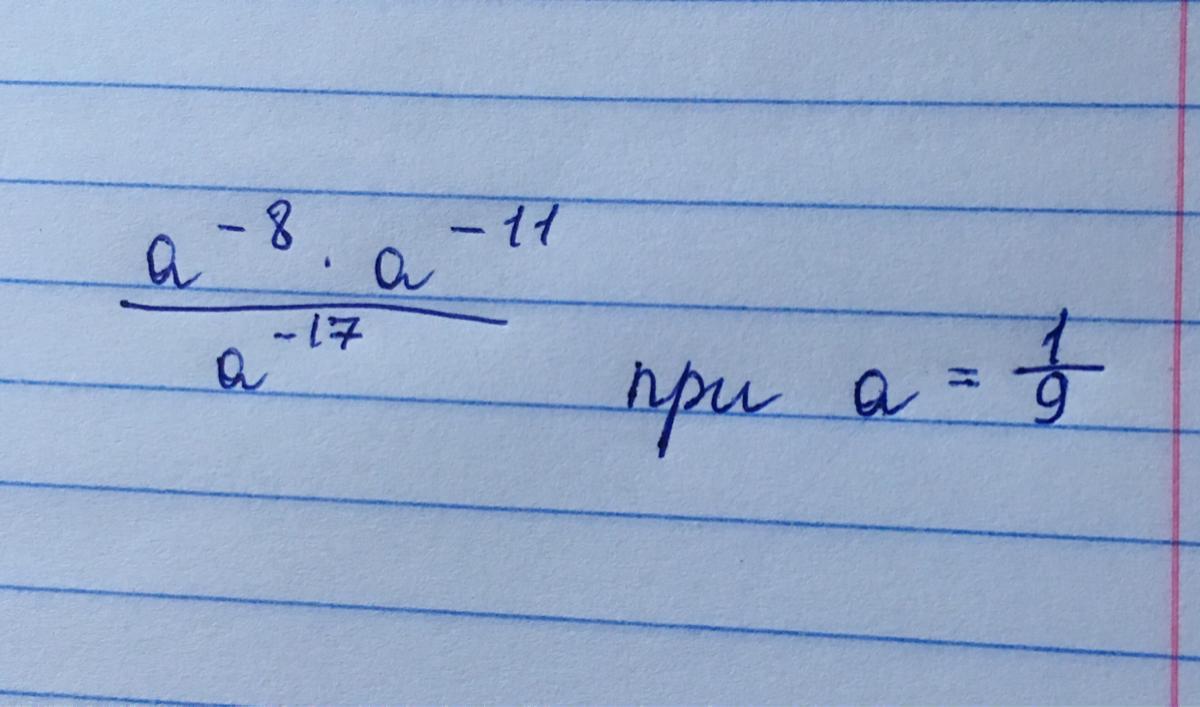 a^{-8} · a^{-11}
/ a^{-17} при a = 1/9